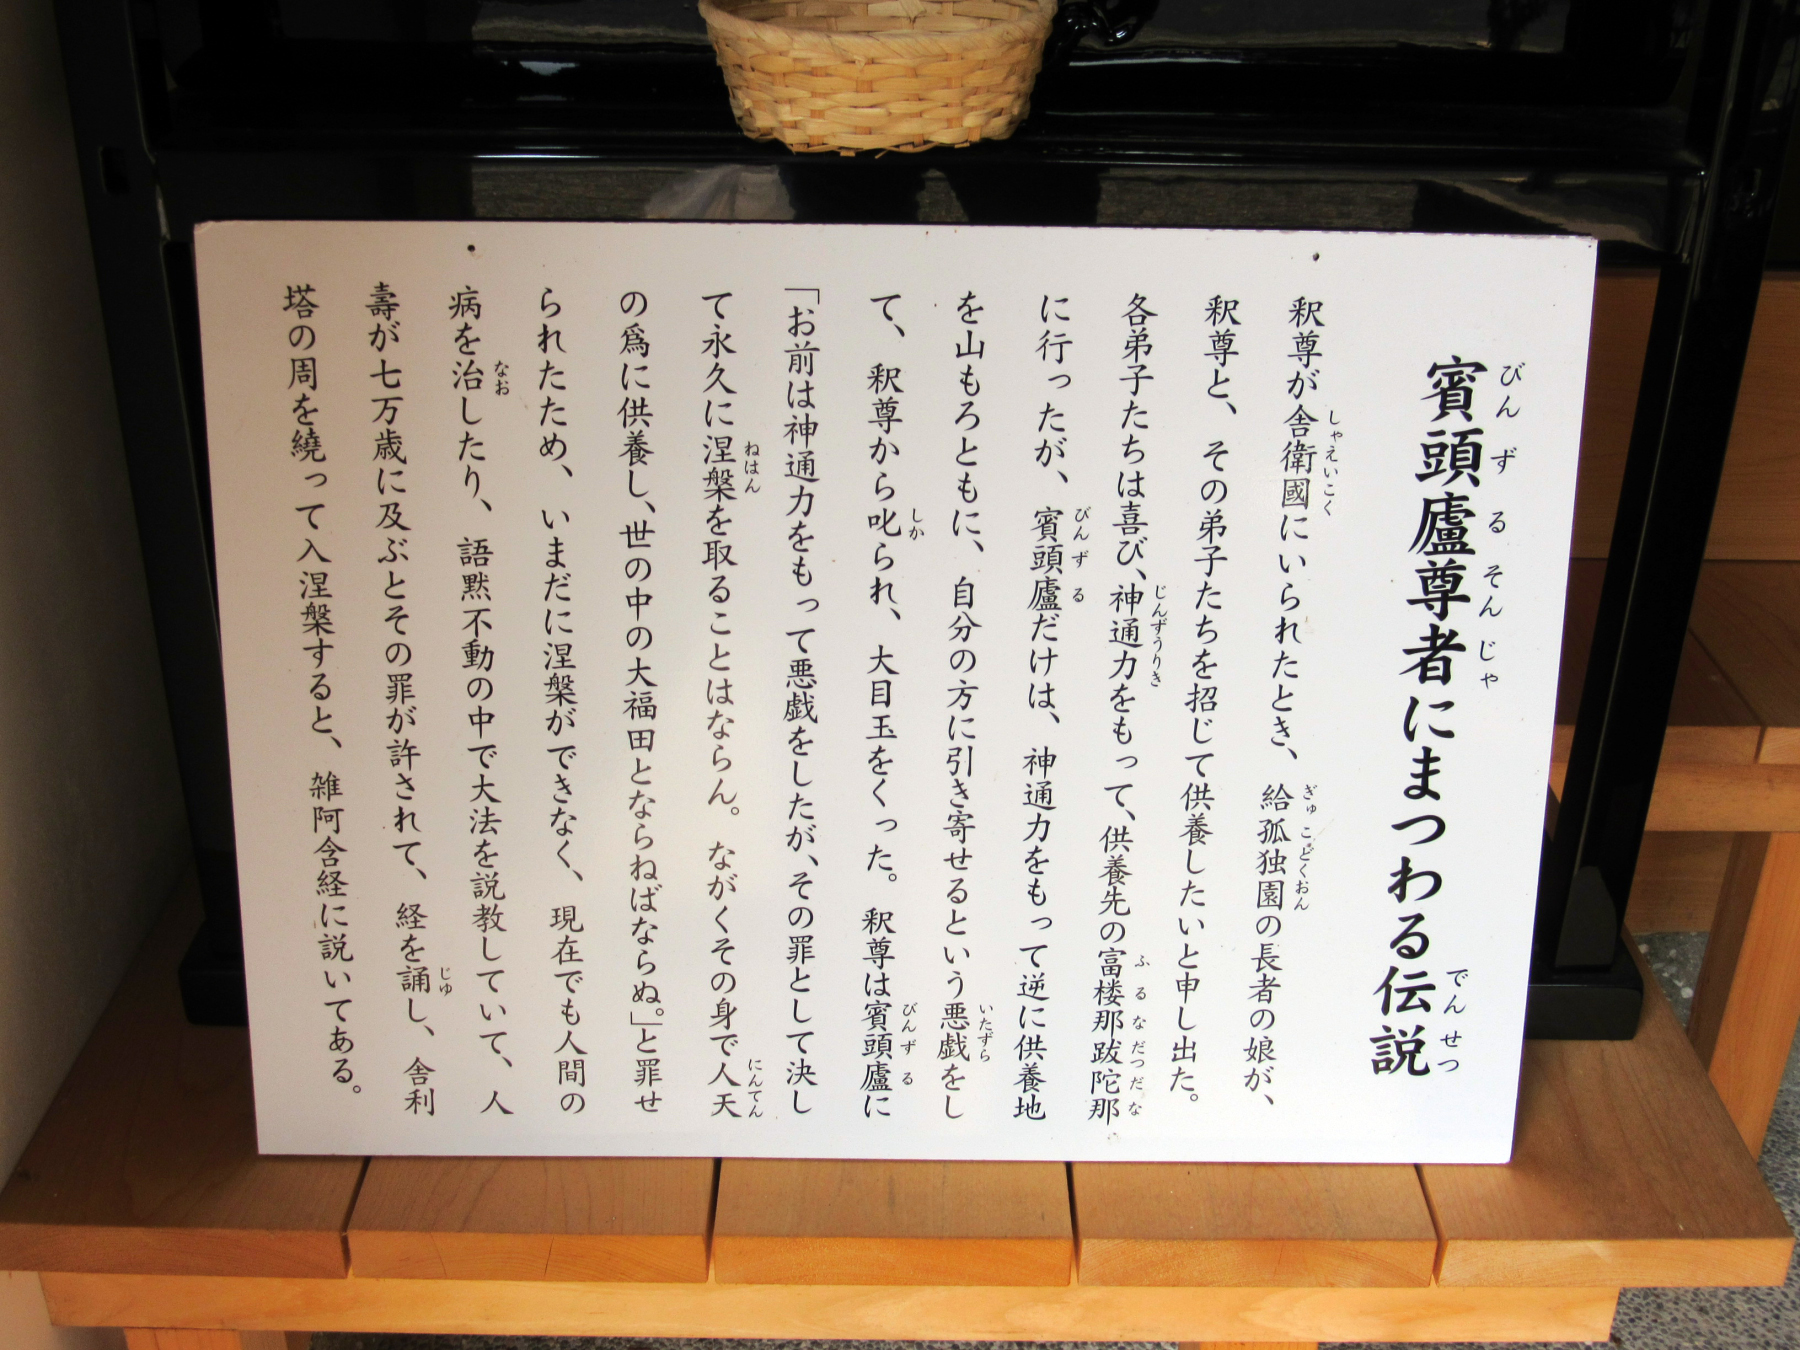 賓頭廬尊者にまつわる伝説
釈尊が舎衛國にいられたとき、給孤独園の長者の娘が、
釈尊と、その弟子たちを招じて供養したいと申し出た。
各弟子たちは喜び、神通力をもって、供養先の富楼那跋陀那
に行ったが、賓頭廬だけは、神通力をもって逆に供養地
を山もろともに、自分の方に引き寄せるという悪戯をし
て、釈尊から叱られ、大目玉をくった。釈尊は賓頭廬に
「お前は神通力をもって悪戯をしたが、その罪として決し
て永久に涅槃を取ることはならん。ながくその身で人天
の爲に供養し、世の中の大福田とならねばならぬ。」と罪せ
られたため、いまだに涅槃ができなく、現在でも人間の
病を治したり、語黙不動の中で大法を説教していて、人
壽が七万歳に及ぶとその罪が許されて、経を誦し、舎利
塔の周を繞って入涅槃すると、雑阿含経に説いてある。